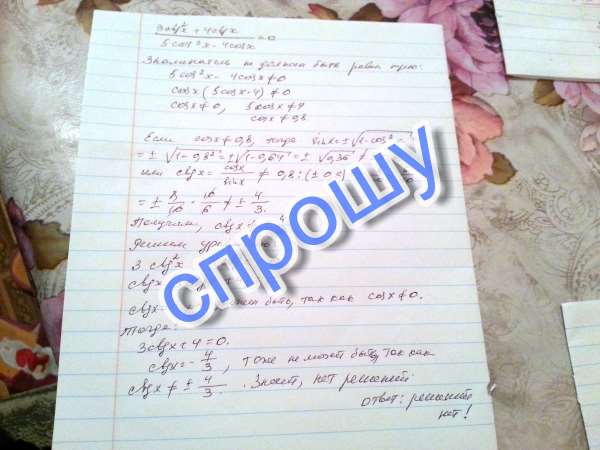 3ctg²x + 4ctgx
5cos²x - 4cosx =0
Знаменатель не должен быть равен нулю:
5cos²x - 4cosx ≠0
cosx (5cosx-4) ≠0
cosx ≠0, 5cosx ≠4
cosx ≠ 0,8
Если cosx ≠ 0,8, тогда sinx = ± √1-cos²
= ± √1-0,8² = ± √1-0,64 = ± √0,36 ≠
или ctgx = cosx/sinx ≠ 0,8 : (± 0,6)
= ± 8/10 · 10/6 ≠ ± 4/3.
Получили, ctgx
Решаем
3 ctg²x
ctgx
ctgx быть, так как cosx ≠0.
Тогда:
3ctgx + 4 = 0.
ctgx = - 4/3, тоже не может быть, так как
ctgx ≠ ± 4/3. Значит, нет решений
ответ: решений
нет!
спрошу